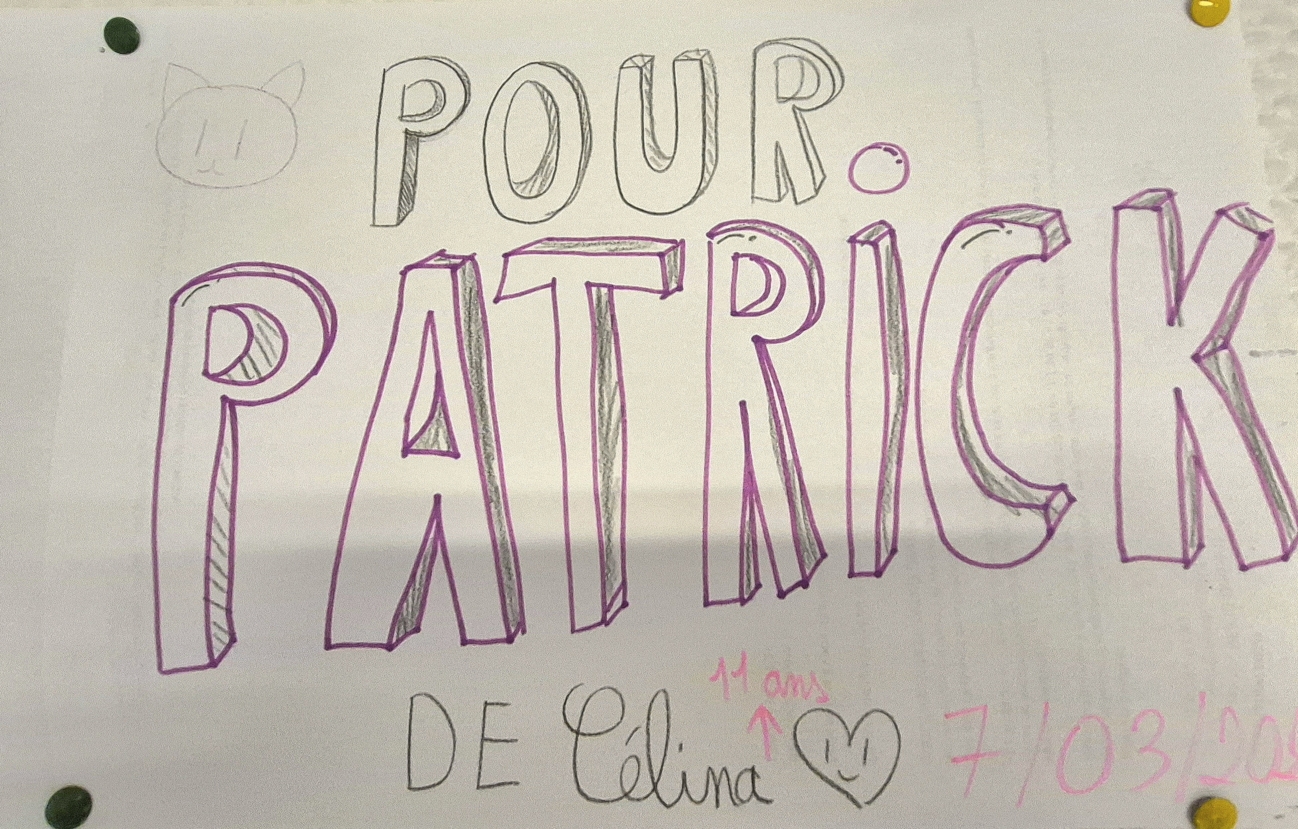 POUR
PATRiCK
11 ans
DE Célina 7/03/20